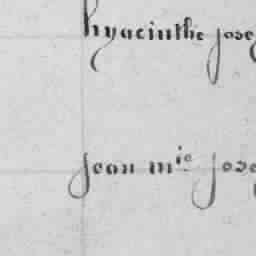 hyacinthe jose
jean mie jose